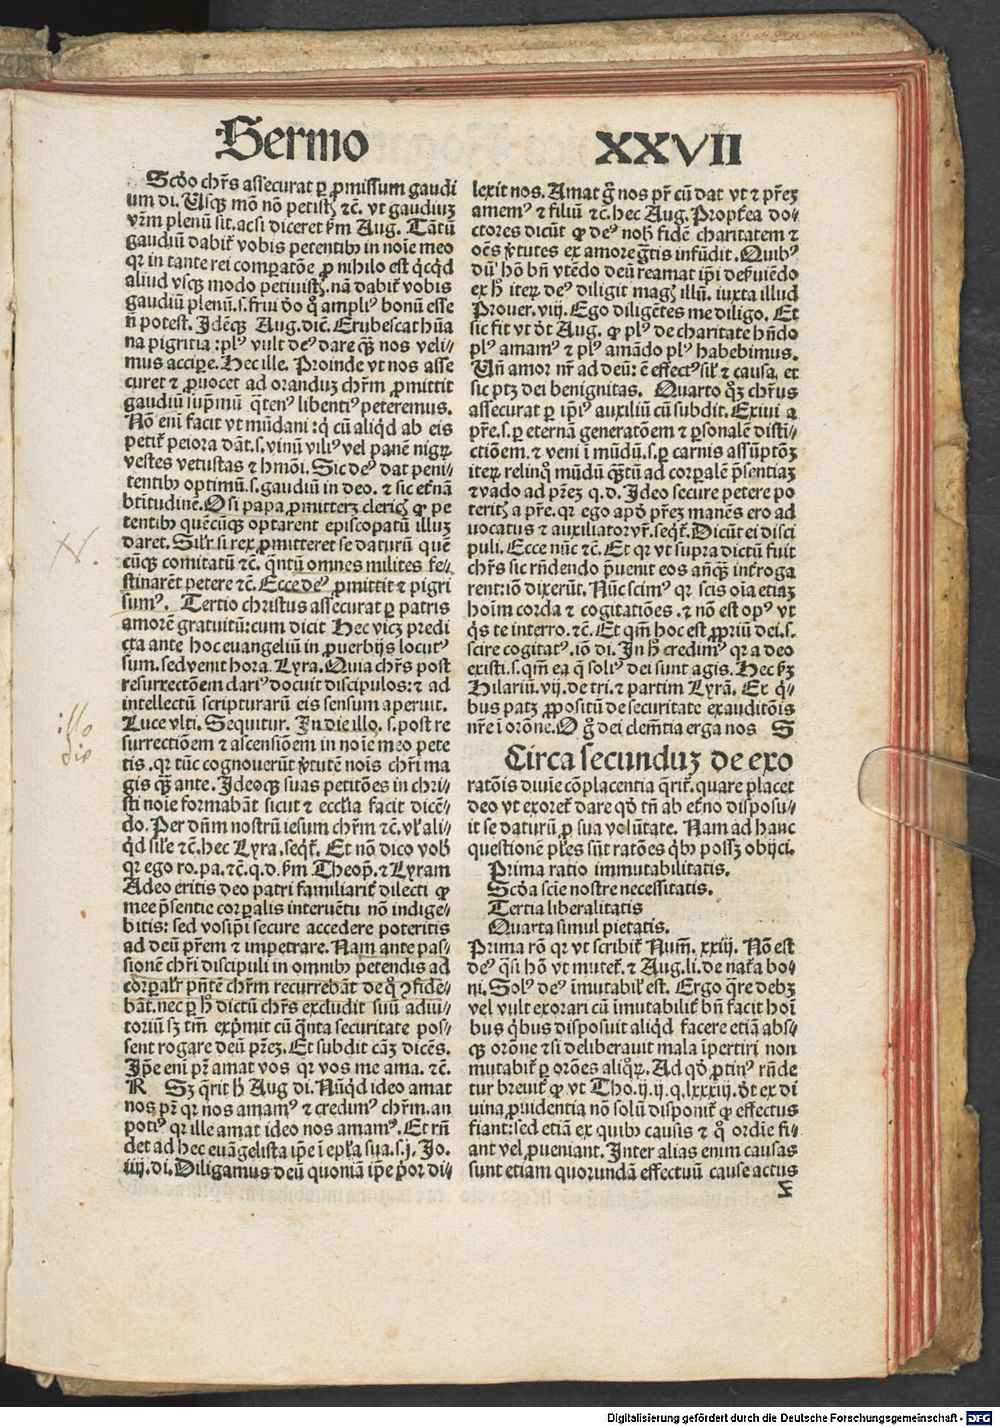 Sermo XXVII
Scďo chr̃s assecurat ꝑ ꝓmissum gaudi
um di. Usqꝫ mõ nõ petistꝭ ⁊c. vt gaudiuꝫ
vr̃m plenũ sit. acsi diceret ẜm Aug. Tãtũ
gaudiũ dabit᷑ vobis petentibꝰ in noĩe meo
qꝛ in tante rei compatõe ꝓ nihilo est qͥcqͥd
aliud vsqꝫ modo petiuistꝭ. nã dabit᷑ vobis
gaudiũ plenũ. s. frui ďo qͦ ampliꝰ bonũ esse
nͦ potest. Idẽqꝫ Aug. dic̃. Erubescat hũa
na pigritia : plꝰ vult deꝰ dare qꝫ̃ nos veli⸗
mus accipe. Hec ille. Proinde vt nos asse
curet ⁊ ꝓuocet ad oranduꝫ chr̃m ꝓmittit
gaudiũ sup̃mũ qͣtenꝰ libentiꝰ peteremus.
Nõ enĩ facit vt mũdani : qͥ cũ aliqͥd ab eis
petit᷑ peiora dãt. s. vinũ viliꝰ vel panẽ nigꝝ
vestes vetustas ⁊ hmõi. Sic deꝰ dat peni⸗
tentibꝰ optimũ. s. gaudiũ in deo. ⁊ sic et̃nã
btĩtudinẽ. O si papa ꝓmitterꝫ clericꝭ ꝙ pe
tentibꝰ quẽcũqꝫ optarent episcopatũ illuꝫ
daret. Silr̃ si rex ꝓmitteret se daturũ quẽ
cũqꝫ comitatũ ⁊c. qͣntũ omnes milites fe⸗
stinarẽt petere ⁊c. Ecce deꝰ ꝓmittit ⁊ pigri
sumꝰ. Tertio christus assecurat ꝑ patris
amorẽ gratuitũ : cum dicit Hec vicꝫ predi
cta ante hoc euangeliũ in ꝓuerbijs locutꝰ
sum. sed venit hora Lyra. Quia chr̃s post
resurrectõem clariꝰ docuit discipulos : ⁊ ad
intellectũ scripturarũ eis sensum aperuit.
Luce vlti. Sequitur. In die illo. s. post re
surrectiõem ⁊ ascensiõem in noĩe meo pete
tis. qꝛ tũc cognouerũt v̓tutẽ nois chr̃i ma
gis qꝫ̃ ante. Ideoqꝫ suas petitões in chri⸗
sti noĩe formabãt sicut ⁊ eccľia facit dicẽ⸗
do. Per dñm nostrũ iesum chr̃m ⁊c. vľ ali⸗
qͥd sile ⁊c. hec Lyra. seqt᷑. Et nõ dico vobꝭ
qꝛ ego ro. pa. ⁊c. q. d. ẜm Theop̃. ⁊ Lyram
Adeo eritis deo patri familiarit᷑ dilecti ꝙ
mee p̃sentie corꝑalis interuẽtu nõ indige⸗
bitis : sed vosip̃i secure accedere poteritis
ad deũ pr̃em ⁊ impetrare. Nam ante pas⸗
sionẽ chr̃i discipuli in omnibꝰ petendis ad
corꝑalr̃ pñtẽ chr̃m recurrebãt de qͦ ꝯfide⸗
bãt. nec ꝑ hͦ dictũ chr̃s excludit suũ adiu⸗
toriũ sꝫ tm̃ exp̃mit cũ qͣnta securitate pos⸗
sent rogare deũ pr̃eꝫ. Et subdit cãꝫ dicẽs.
Ip̃e enĩ pr̃ amat vos qꝛ vos me ama. ⁊c.
R Sꝫ qͣrit hͦ Aug di. Nũqͥd ideo amat
nos pr̃ qꝛ nos amamꝰ ⁊ credimꝰ chr̃m. an
potiꝰ qꝛ ille amat ideo nos amamꝰ. Et rñ
det ad hec euãgelista ip̃e ĩ epľa sua. s. j. Jo.
iiij. di. Diligamus deũ quoniã ip̃e p̓or di⸗
lexit nos. Amat gͦ nos pr̃ cũ dat vt ⁊ pr̃eꝫ
amemꝰ ⁊ filiũ ⁊c. hec Aug. Propt̃ea do⸗
ctores dicũt ꝙ deꝰ nobꝭ fidẽ charitatem ⁊
oẽs v̓tutes ex amore gͣtis infũdit. Quibꝰ
dũ hõ bñ vtẽdo deũ reamat ip̃i deẜuiẽdo
ex hͦ iteꝝ deꝰ diligit magꝭ illũ. iuxta illud
Prouer. viij. Ego diligẽtes me diligo. Et
sic fit vt d̓t Aug. ꝙ plꝰ de charitate hñdo
plꝰ amamꝰ ⁊ plꝰ amãdo plꝰ habebimus.
Uñ amor nr̃ ad deũ : ẽ effectꝰ siľ ⁊ causa. et
sic ptꝫ dei benignitas. Quarto qͦꝫ chr̃us
assecurat ꝑ ip̃iꝰ auxiliũ cũ subdit. Exiui a
pr̃e. s. ꝑ eternã generatõem ⁊ ꝑsonalẽ disti⸗
ctiõem. ⁊ veni ĩ mũdũ. s. ꝑ carnis assũptõꝫ
iteꝝ relinqͦ mũdũ qꝫ̃tũ ad corꝑalẽ p̃sentiaꝫ
⁊ vado ad pr̃eꝫ q. d. Ideo secure petere po
teritꝭ a pr̃e. qꝛ ego apď pr̃eꝫ manẽs ero ad
uocatus ⁊ auxiliator vr̃. seqt᷑. Dicũt ei disci
puli. Ecce nũc ⁊c. Et qꝛ vt supra dictũ fuit
chr̃s sic rñdendo p̃uenit eos añqꝫ int̃roga
rent : iõ dixerũt. Nũc scimꝰ qꝛ scis oĩa etiaꝫ
hoĩm corda ⁊ cogitatiões. ⁊ nõ est opꝰ vt
qͥs te interro. ⁊c. Et qm̃ hoc est ꝓpriũ dei. s.
scire cogitatꝰ. iõ di. In hͦ credimꝰ qꝛ a deo
existi. s. qm̃ ea q̃ soliꝰ dei sunt agis. Hec ẜꝫ
Hilariũ. vij. de tri. ⁊ partim Lyrã. Ex qͥ⸗
bus patꝫ ꝓpositũ de securitate exauditõis
nr̃e ĩ orõne. O gͦ dei clem̃tia erga nos S
Circa secunduꝫ de exo
ratõis diuĩe cõplacentia qͣrit᷑. quare placet
deo vt exoret᷑ dare qď tñ ab et̃no disposu⸗
it se daturũ ꝓ sua volũtate. Nam ad hanc
questionẽ pľes sũt ratões qͥbꝰ possꝫ obijci.
Prima ratio immutabilitatis.
Scďa scĩe nostre necessitatis.
Tertia liberalitatis
Quarta simul pietatis.
Prima rõ qꝛ vt scribit᷑ Num̃. xxiij. Nõ est
deꝰ qͣsi hõ vt mutet᷑. ⁊ Aug. li. de nat̃a bo⸗
ni. Solꝰ deꝰ ĩmutabil̃ est. Ergo qͣre debꝫ
vel vult exorari cũ immutabilit᷑ bñ facit hoĩ
bus qͥbus disposuit aliqͥd facere etiã abs⸗
qꝫ orõne ⁊ si deliberauit mala ĩpertiri non
mutabit᷑ ꝑ orões aliqͦꝝ. Ad qď ꝓtinꝰ rñde
tur breuit᷑ ꝙ vt Tho. ij. ij. q. lxxxiij. d̓t ex di
uina ꝓuidentia nõ solũ disponit᷑ ꝙ effectus
fiant : sed etiã ex quibꝰ causis ⁊ qͦ ordĩe fi⸗
ant vel ꝓueniant. Inter alias enim causas
sunt etiam quorundã effectuũ cause actus
illo
die
Digitalisierung gefördert durch die Deutsche Forschungsgemeinschaft - DFG